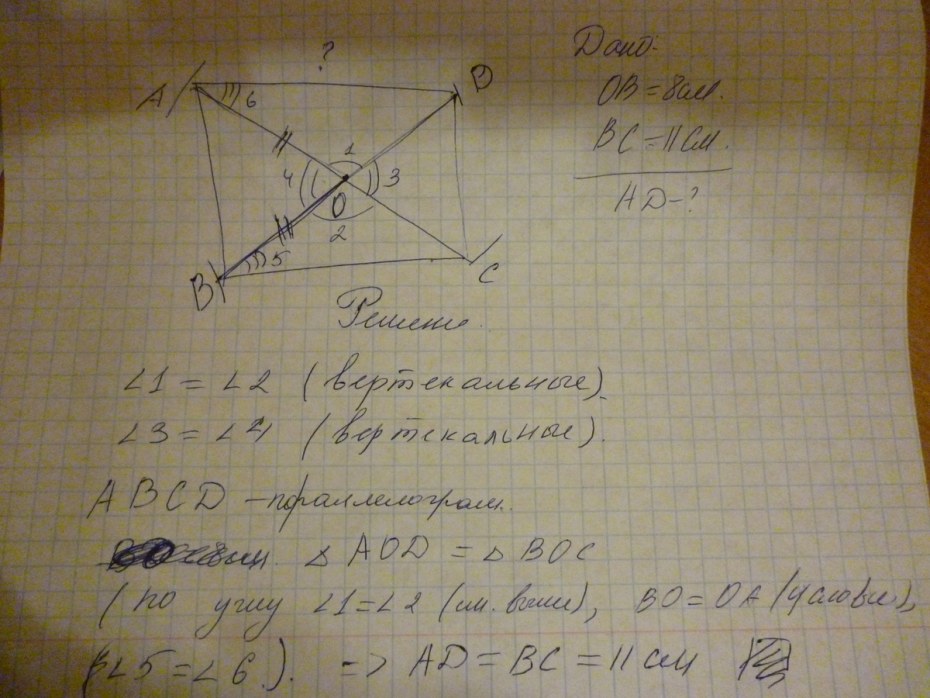 ?
A 6 D
1
4 3
O
2
5
B C
Дано:
OB = 8см.
BC = 11см.
AD - ?
Решение.
∠1 = ∠2 (вертекальные).
∠3 = ∠4 (вертекальные).
ABCD - параллелограм.
△ AOD = △ BOC
(по углу ∠1 = ∠2 (см. выше), BO = OA (условие),
∠5 = ∠6). => AD = BC = 11 см